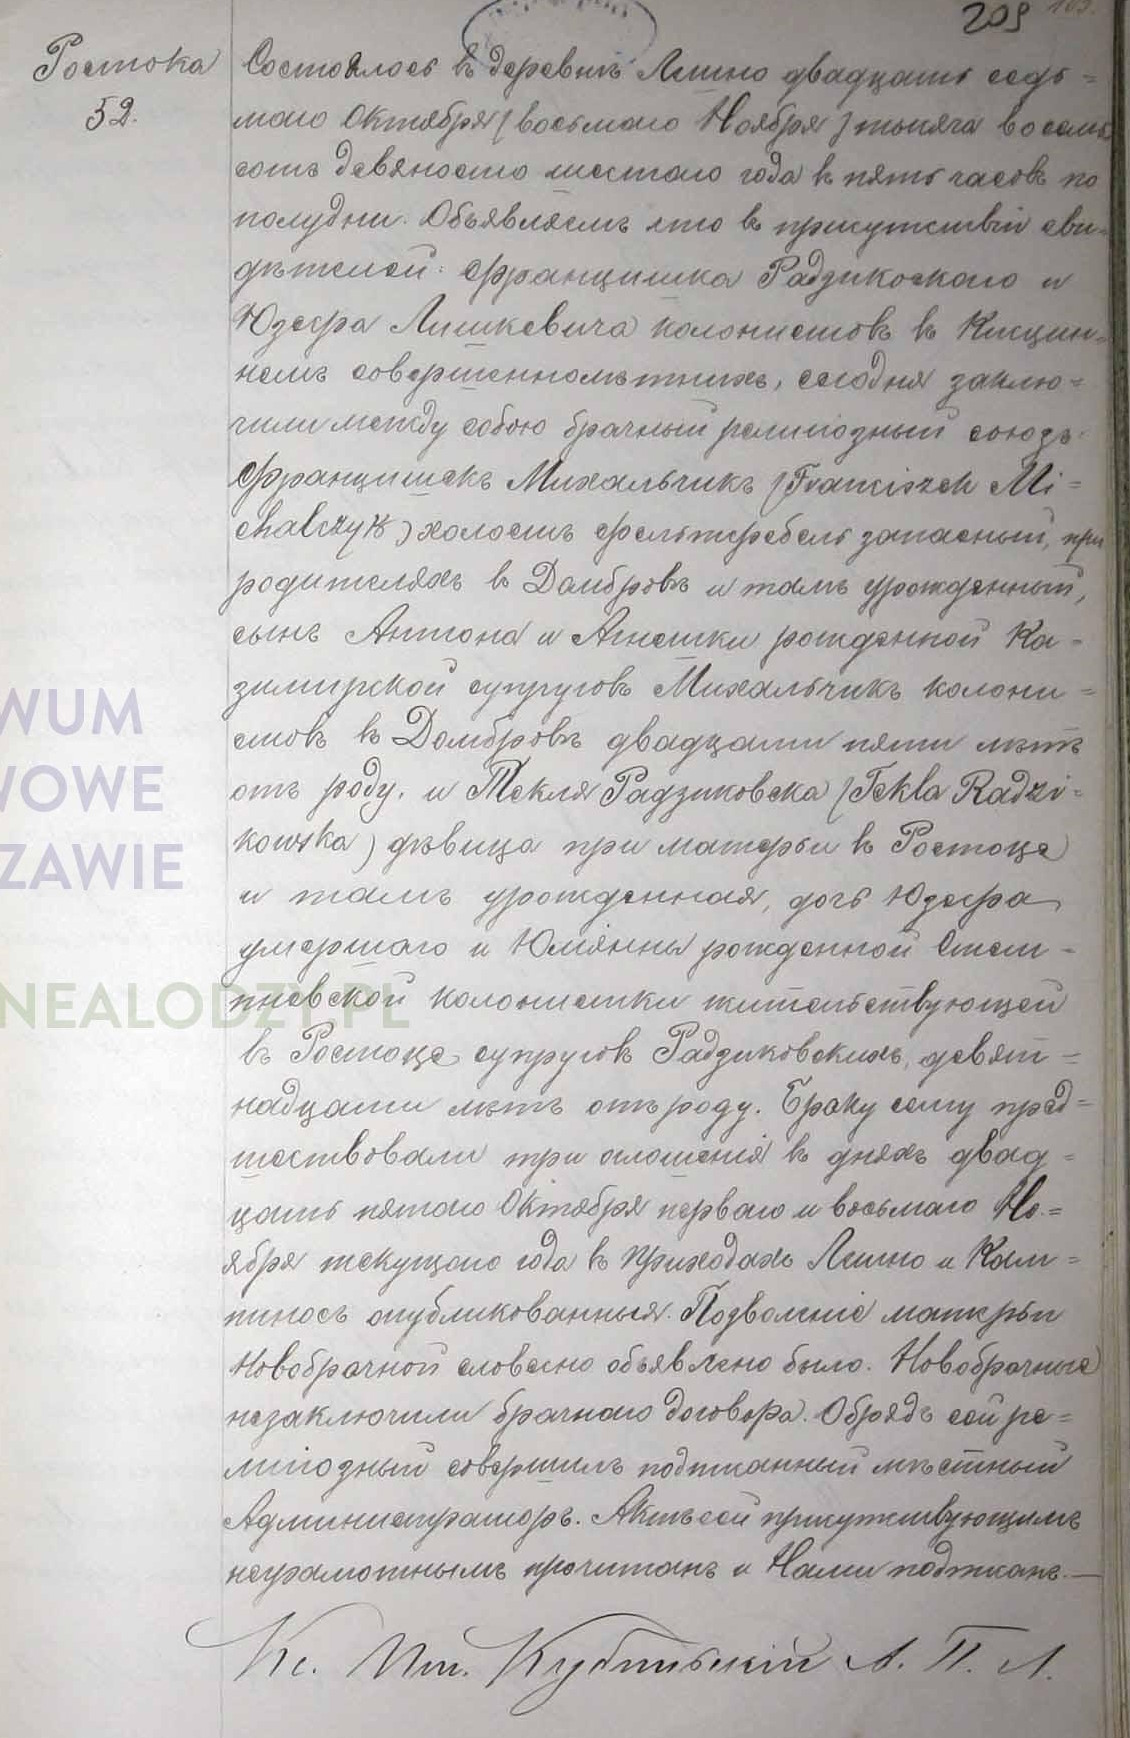 209
Ростока
52.
Состоялось въ деревнѣ Лешно двадцать седь=
маго Октября (восьмаго Ноября) тысяча восемь
сотъ девяносто шестаго года въ пять часовъ по
полудни. Объявляемъ что въ присутствіи сви=
дѣтелей: Францишка Радзиковскаго и
Юзефа Лишкевича колонистовъ въ
совершеннолѣтнихъ, сегодня заклю=
чили между собою брачный религіозный союзъ:
Францишекъ Михальчикъ (Franciszek Mi=
chalczyk) холостъ фельтфебель запасный, при
родителяхъ въ Домбровѣ и тамъ урожденный,
сынъ Антона и Агнешки рожденной Ка=
зимирской супруговъ Михальчикъ колони=
стовъ въ Домбровѣ двадцати пяти лѣтъ
отъ роду. и Текля Радзиковска (Tekla Radzi=
kowska) дѣвица при матери въ Ростоце
и тамъ урожденная, дочь Юзефа
умершаго и Юліянны рожденной Стем=
пневской колонистки жительствующей
въ Ростоце супруговъ Радзиковскихъ, девят=
надцати лѣтъ отъ роду. Браку сему пред=
шествовали три оглошенія въ дняхъ двад=
цать пятаго Октября перваго и восьмаго Но=
ября текущаго года въ приходахъ Лешно и Кам=
пиносъ опубликованныя. Подволеніе матери
Новобрачной словесно объявлено было. Новобрачные
незаключили брачнаго договора. Обрядъ сей ре=
лигіозный совершилъ подписанный мѣстный
Администраторъ. Актъ сей присутствующимъ
неграмотнымъ прочитанъ и Нами подписанъ.—
Кс. А. П. Л.
WUM
WOWE
ZAWIE
NEALODZY.PL